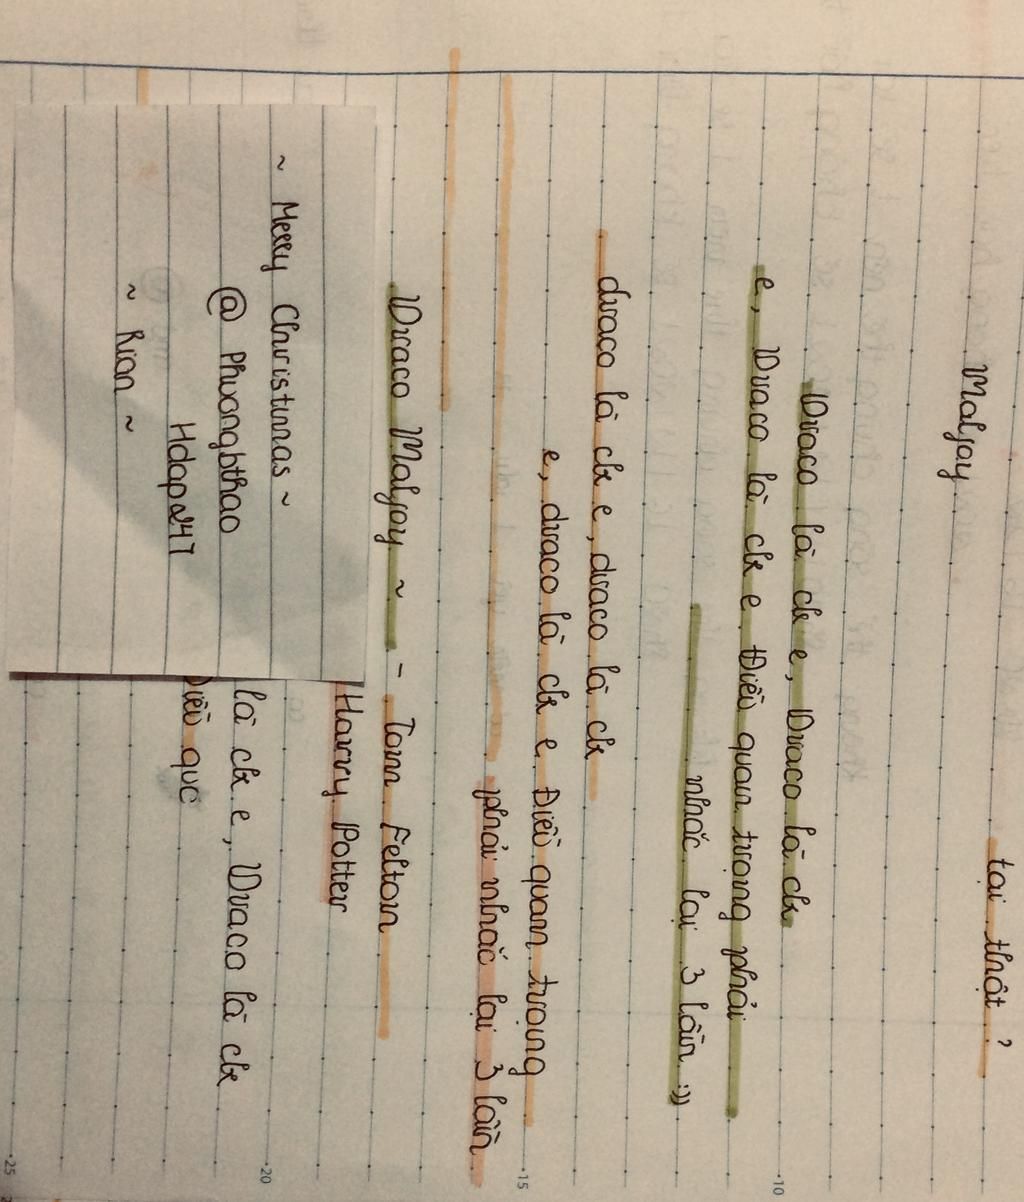 tại thật ?
Malfoy
Draco là ck e, Draco là ck
e, Draco là ck e. Điều quan trọng phải
nhắc lại 3 lần :))
draco là ck e, draco là ck
e, draco là ck e. Điều quan trọng
phải nhắc lại 3 lần.
Draco Malfoy ~ - Tom Felton
Harry Potter
là ck e, Draco là ck
Điều quc
~ Merry Christmas ~
@ Phuongbthao
Hdapa247
~ Rian ~
10
15
20
25